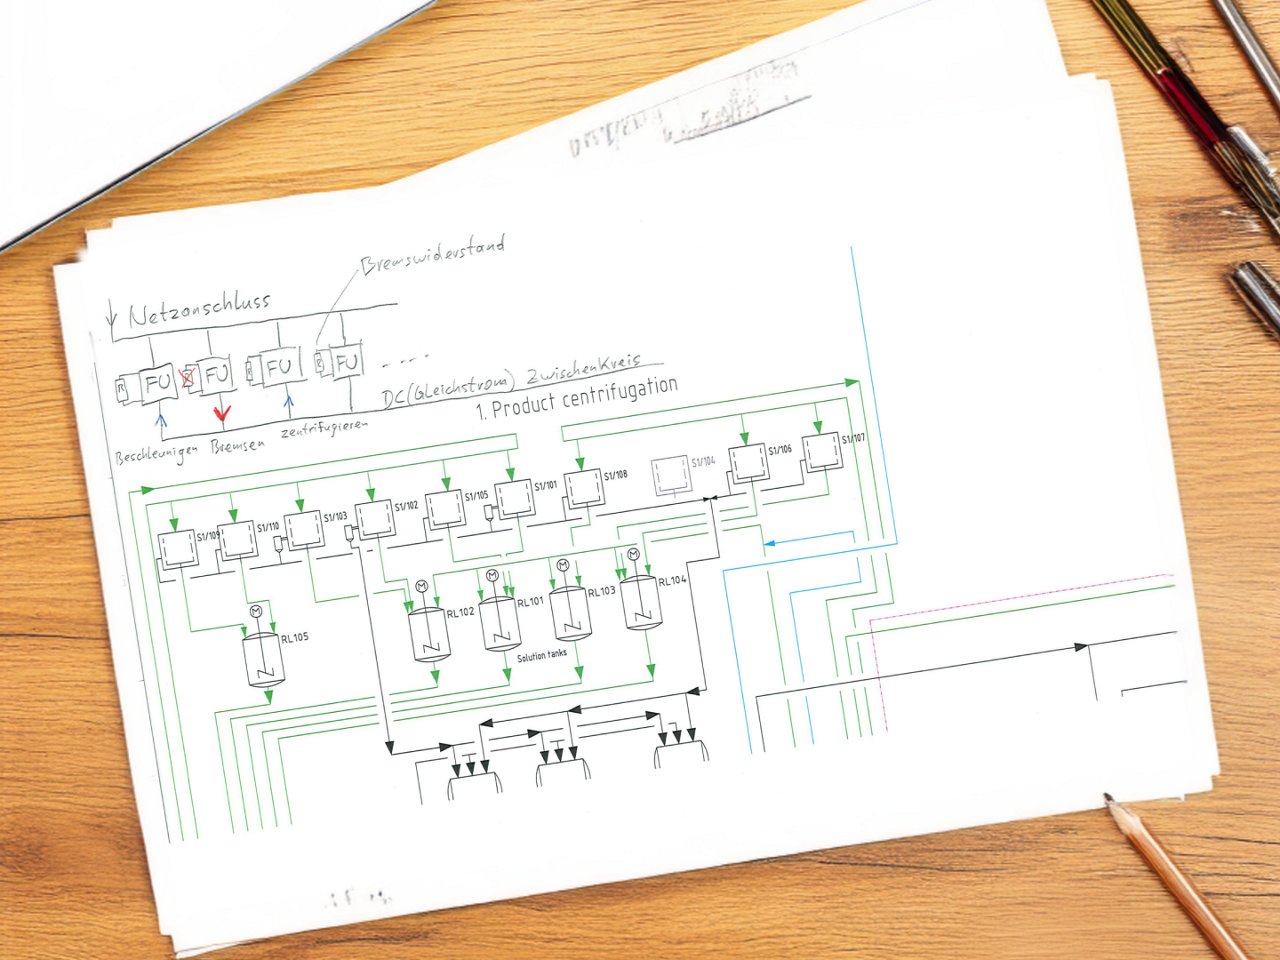 Bremswiderstand
Netzanschluss
R FU R FU R FU R FU
DC(Gleichstrom) Zwischenkreis
Beschleunigen Bremsen zentrifugieren
1. Product centrifugation
S1/109
S1/110
S1/103
S1/102
S1/105
S1/101
S1/108
S1/104
S1/106
S1/107
M
M
M
M
M
RL105
RL102
RL101
RL103
RL104
Solution tanks